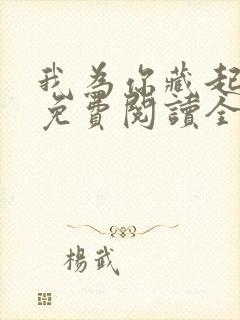 我為你藏起
免費閱讀全
楊武